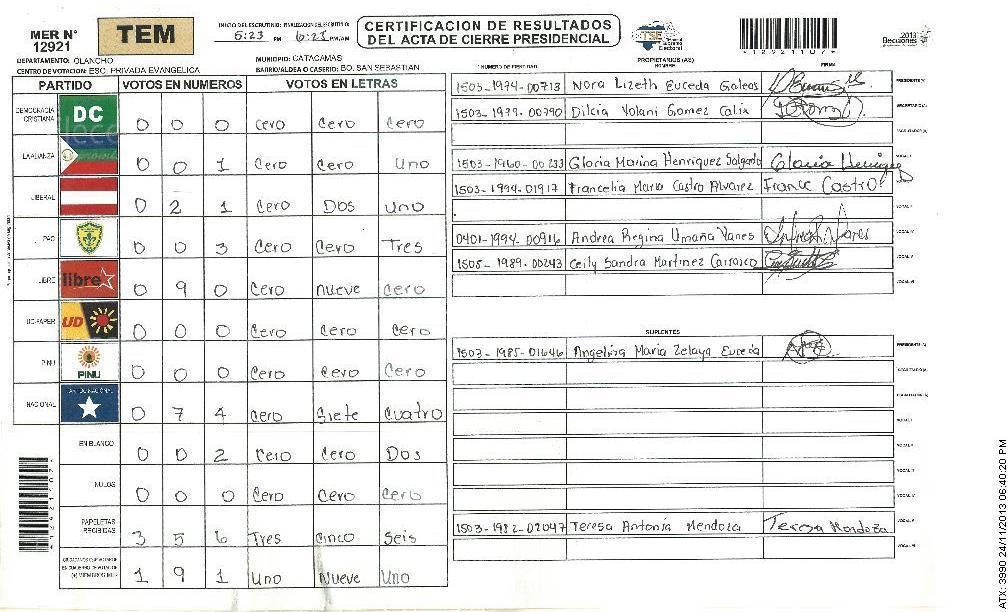 MER N° 12921
TEM
INICIO DEL ESCRUTINIO: FINALIZACION DEL ESCRUTINIO:
5:23 PM 6:23 PM/AM
CERTIFICACION DE RESULTADOS
DEL ACTA DE CIERRE PRESIDENCIAL
TSE Tribunal Supremo Electoral
*12921107*
2013 Elecciones
DEPARTAMENTO: OLANCHO
MUNICIPIO: CATACAMAS
CENTRO DE VOTACION: ESC. PRIVADA EVANGELICA
BARRIO/ALDEA O CASERIO: BO. SAN SEBASTIAN
PARTIDO VOTOS EN NUMEROS VOTOS EN LETRAS
DEMOCRACIA CRISTIANA DC 0 0 0 Cero Cero Cero
LA ALIANZA 0 0 1 Cero Cero Uno
LIBERAL 0 2 1 Cero Dos Uno
PAC 0 0 3 Cero Cero Tres
LIBRE libre 0 9 0 Cero nueve Cero
UD-FAPER UD 0 0 0 Cero Cero Cero
PINU PINU 0 0 0 Cero Cero Cero
NACIONAL PARTIDO NACIONAL 0 7 4 Cero Siete Cuatro
EN BLANCO 0 0 2 Cero Cero Dos
NULOS 0 0 0 Cero Cero Cero
PAPELETAS RECIBIDAS 3 5 6 Tres Cinco Seis
1 9 1 Uno Nueve Uno
PROPIETARIOS (AS)
NUMERO DE IDENTIDAD NOMBRE FIRMA
1503-1974-00713 Nora Lizeth Euceda Galeas PRESIDENTE(A)
1503-1979-00790 Dilcia Yolani Gomez Calix SECRETARIO(A)
ESCRUTADOR(A)
1503-1960-00233 Gloria Marina Henriquez Salgado Gloria Henriquez VOCAL I
1503-1994-01917 Francelia Maria Castro Alvarez France Castro VOCAL II
VOCAL III
0401-1994-00916 Andrea Regina Umaña Vanes VOCAL IV
1505-1989-00243 Ceily Sandra Martinez Carrasco VOCAL V
VOCAL VI
SUPLENTES
1503-1985-01646 Angelina Maria Zelaya Euceda PRESIDENTE(A)
SECRETARIO(A)
ESCRUTADOR(A)
VOCAL I
VOCAL II
VOCAL III
VOCAL IV
1503-1982-02047 Teresa Antonia Mendoza Teresa Mendoza VOCAL V
VOCAL VI
*12921107*
ATX: 3990 24/11/2013 06:40:20 PM